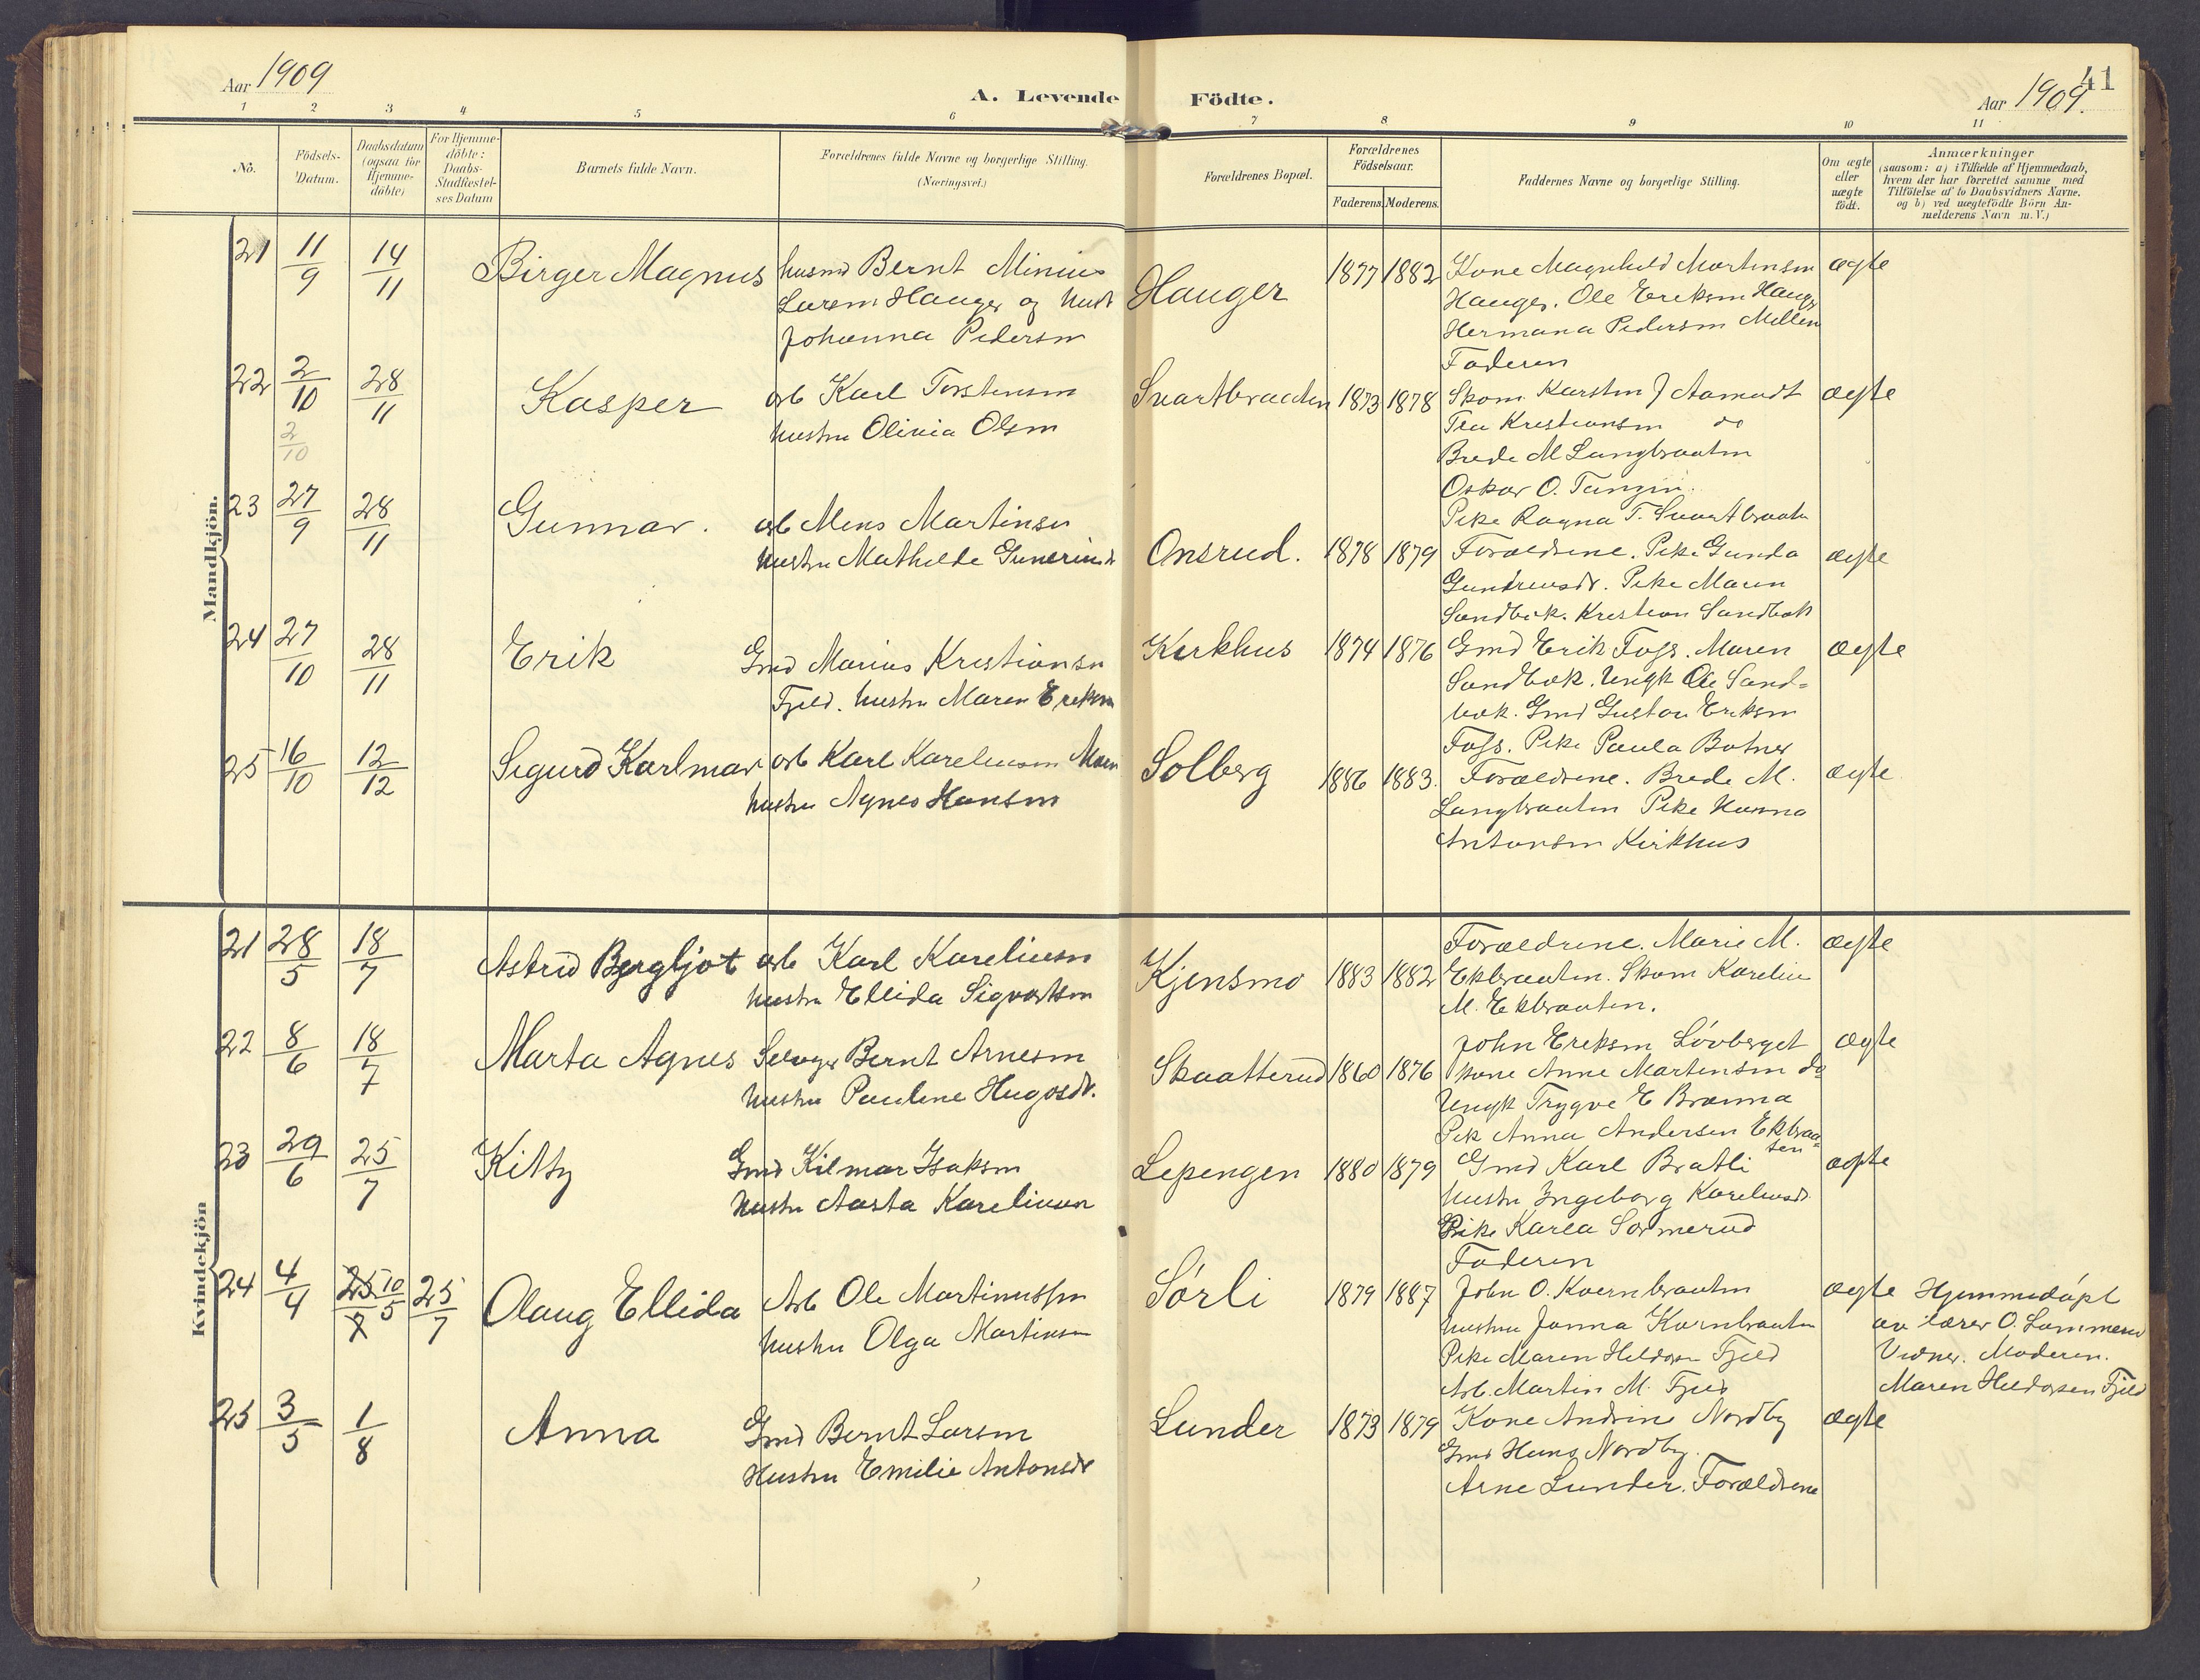 Aar 1909
A. Levende
Födte.
41
Aar 1909.
1 2 3 4 5 6 7 8 9 10 11
No.
Födsels-
Datum.
Daabsdatum
(ogsaa for
Hjemme-
döbte)
For Hjemme-
döbte:
Daabs-
Stadfæstel-
ses Datum
Barnets fulde Navn.
Forældrenes fulde Navne og borgerlige Stilling.
(Næringsvei.)
Forældrenes Bopæl.
Forældrenes
Födselsaar.
Faderens. Moderens.
Faddernes Navne og borgerlige Stilling.
Om ægte
eller
uægte
födt.
Anmærkninger
(saasom: a) i Tilfælde af Hjemmedaab,
hvem der har forrettet samme med
Tilföielse af to Daabsvidners Navne.
og b) ved uægtefödte Börn An-
melderens Navn m. V.)
Mandkjön.
21 11/9 14/11 Birger Magnus husmd Bernt Minius
Larsen Hauger og hust
Johanna Pedersen
Hauger 1877 1882 Kone Magnhild Martinsen ægte
Hauger. Ole Eriksen Hauger
Hermana Pedersen Mellem
Faderen
22 2/10 28/11 Kasper arb Karl Torstensen
hustru Olivia Olsen
2/10
Svartbraaten 1873 1878 Skom. Karsten J Aamodt ægte
Tea Kristiansen do
Brede M Langbraaten
Oskar O. Tangen.
Pike Ragna T. Svartbraaten
23 27/9 28/11 Gunnar. arb Mens Martinsen
hustru Mathilde
Onsrud. 1878 1879 Forældrene. Pike Gunda ægte
Pike Maren
Sandbæk. Kristian Sandbæk
24 27/10 28/11 Erik Gmd Marius Kristiansen
Fjeld. hustru Maren Eriksen
Kirkhus 1874 1876 Gmd Erik Foss. Maren ægte
Sandbæk. Ungk Ole Sand-
bæk. Gmd Gustav Eriksen
Foss. Pike Paula Botner
25 16/10 12/12 Sigurd Karlmar arb Karl Kareliusen Moen
hustru Agnes Hansen
Solberg 1886 1883. Forældrene. Brede M. ægte
Langbraaten Pike Hanna
Antonsen Kirkhus
Kvindekjön
21 28/5 18/7 Astrid Bergljot arb Karl Kareliusen
hustru Ellida Sigvartsen
Kjensmo 1883 1882 Forældrene. Marie M. ægte
Ekbraaten. Skom Karelius
M. Ekbraaten.
22 8/6 18/7 Marta Agnes Selveger Bernt Arnesen
hustru Pauline Hugosdt.
Skaatterud 1860 1876 John Eriksen Lövberget ægte
kone Anne Martinsen do
Ungk Trygve E Brænna
Pik Anna Andersen Ekbraa-
ten
23 29/6 25/7 Kitty Gmd Hilmar Isaksen
hustru Aasta Kareliusen
Lepengen 1880 1879 Gmd Karl Bratli ægte
hustru Ingeborg Kareliusdt.
Pike Karla Sormerud
Faderen
24 4/4 25/7 10/5 25/7 Olaug Ellida Arb Ole Martinussen
hustru Olga Martinsen
Sörli 1879 1887 John O. Kvernbraaten ægte Hjemmedöpt
hustru Janna Kvernbraaten av lærer O. Lommerud
Pike Maren Heldorsen Fjeld Vidner. Moderen.
Arb. Martin M. Fjeld Maren Heldorsen Fjeld
25 3/5 1/8 Anna Gmd Bernt Larsen
Hustru Emilie Antonsdt
Lunder 1873 1879 Kone Andrine Nordby ægte
Gmd Hans Nordby.
Arne Lunder. Forældrene